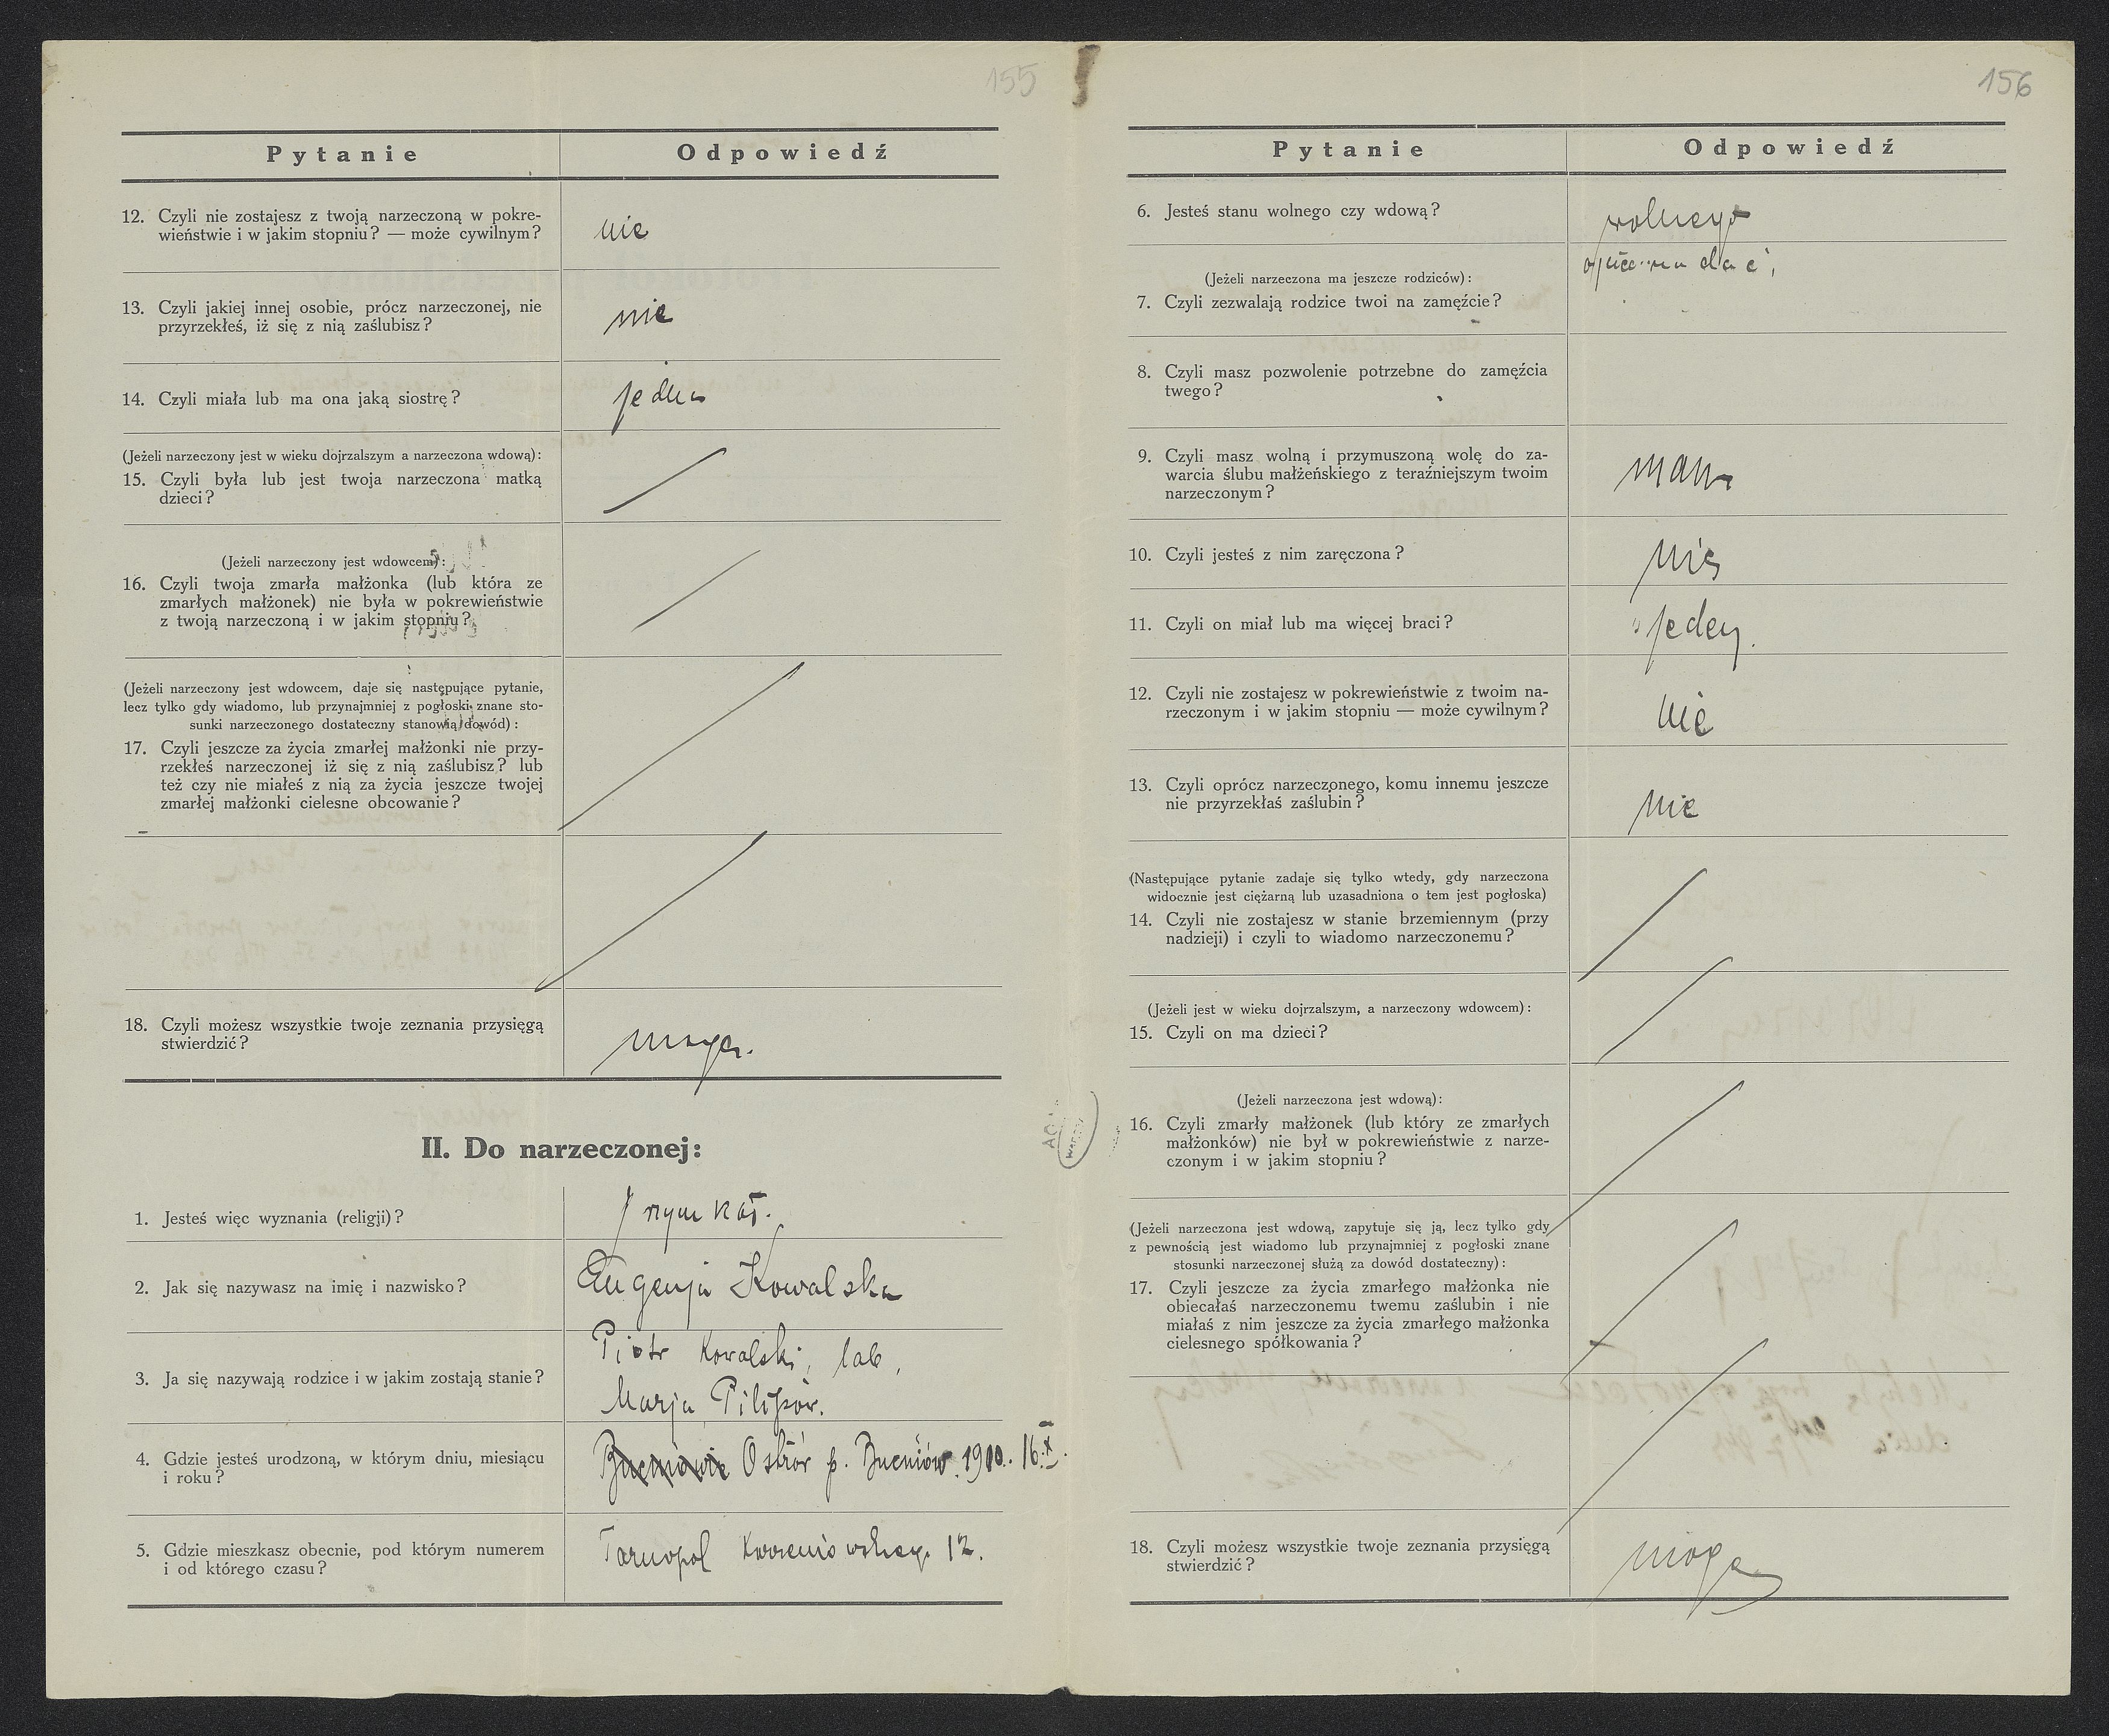 155
Pytanie
Odpowiedź
12. Czyli nie zostajesz z twoją narzeczoną w pokre-
wieństwie i w jakim stopniu? — może cywilnym?
nie
13. Czyli jakiej innej osobie, prócz narzeczonej, nie
przyrzekłeś, iż się z nią zaślubisz?
nie
14. Czyli miała lub ma ona jaką siostrę?
jedną
(Jeżeli narzeczony jest w wieku dojrzalszym a narzeczona wdową):
15. Czyli była lub jest twoja narzeczona matką
dzieci?
(Jeżeli narzeczony jest wdowcem):
16. Czyli twoja zmarła małżonka (lub która ze
zmarłych małżonek) nie była w pokrewieństwie
z twoją narzeczoną i w jakim stopniu?
(Jeżeli narzeczony jest wdowcem, daje się następujące pytanie,
lecz tylko gdy wiadomo, lub przynajmniej z pogłoski znane sto-
sunki narzeczonego dostateczny stanowią dowód):
17. Czyli jeszcze za życia zmarłej małżonki nie przy-
rzekłeś narzeczonej iż się z nią zaślubisz? lub
też czy nie miałeś z nią za życia jeszcze twojej
zmarłej małżonki cielesne obcowanie?
18. Czyli możesz wszystkie twoje zeznania przysięgą
stwierdzić?
mogę.
II. Do narzeczonej:
1. Jesteś więc wyznania (religji)?
rzym kat.
2. Jak się nazywasz na imię i nazwisko?
Eugenja Kowalska
3. Ja się nazywają rodzice i w jakim zostają stanie?
Piotr Kowalski,
Marja Pilipów.
4. Gdzie jesteś urodzoną, w którym dniu, miesiącu
i roku?
Bucniowie Ostrów p. Bucniów. 1910. 16.X.
5. Gdzie mieszkasz obecnie, pod którym numerem
i od którego czasu?
Tarnopol 12.
156
Pytanie
Odpowiedź
6. Jesteś stanu wolnego czy wdową?
wolnego
(Jeżeli narzeczona ma jeszcze rodziców):
7. Czyli zezwalają rodzice twoi na zamęźcie?
8. Czyli masz pozwolenie potrzebne do zamęźcia
twego?
9. Czyli masz wolną i przymuszoną wolę do za-
warcia ślubu małżeńskiego z teraźniejszym twoim
narzeczonym?
mam
10. Czyli jesteś z nim zaręczona?
nie
11. Czyli on miał lub ma więcej braci?
jeden.
12. Czyli nie zostajesz w pokrewieństwie z twoim na-
rzeczonym i w jakim stopniu — może cywilnym?
nie
13. Czyli oprócz narzeczonego, komu innemu jeszcze
nie przyrzekłaś zaślubin?
nie
(Następujące pytanie zadaje się tylko wtedy, gdy narzeczona
widocznie jest ciężarną lub uzasadniona o tem jest pogłoska)
14. Czyli nie zostajesz w stanie brzemiennym (przy
nadzieji) i czyli to wiadomo narzeczonemu?
(Jeżeli jest w wieku dojrzalszym, a narzeczony wdowcem):
15. Czyli on ma dzieci?
(Jeżeli narzeczona jest wdową):
16. Czyli zmarły małżonek (lub który ze zmarłych
małżonków) nie był w pokrewieństwie z narze-
czonym i w jakim stopniu?
(Jeżeli narzeczona jest wdową, zapytuje się ją, lecz tylko gdy
z pewnością jest wiadomo lub przynajmniej z pogłoski znane
stosunki narzeczonej służą za dowód dostateczny):
17. Czyli jeszcze za życia zmarłego małżonka nie
obiecałaś narzeczonemu twemu zaślubin i nie
miałaś z nim jeszcze za życia zmarłego małżonka
cielesnego spółkowania?
18. Czyli możesz wszystkie twoje zeznania przysięgą
stwierdzić?
mogę